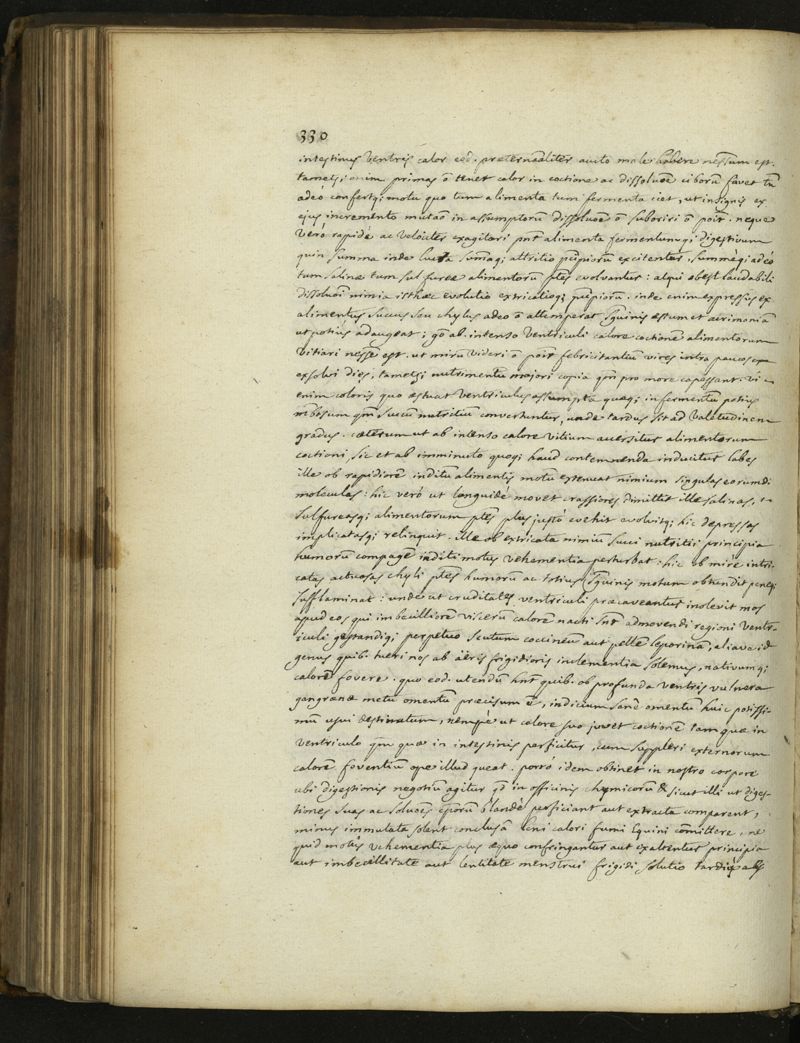 330
intestinus ventris calor eod. praeternaāliter aucto male habere nessum est.
tametsi enim primas ō tenet calor in coctione ac dissoluōe ciborū favet tñ
adeò confertqȝ motu quo tum alimenta tum fermenta ciet, ut insignis ex
ejus incremento mutaō in assumptorum dissoluōe ō suboriri ō poit. neque
verò rapidè ac velociter exagitari pnt alimenta fermentumqȝ digestivum
quin summa inde lucta sumaqȝ attritio pcipiorū excitentur. summèqȝ adeò
tum salinae tum sulfureae alimentorū ptes evolvantur: alqui obest laudabili
dissoluōi nimia isthaec evolutio extricatioqȝ pcipiorū. inde enim expressus ex
alimentis succus seu chylus adeo ō attemperat sguinis aestum et acrimoniā
ut potius adaugeat; gō ab. intenso ventriculi calore coctionē alimentorum
vitiari nesse est. ut mirū videri ō poit febricitantium vires intra paucos
exsolvi dies, tametsi nutrimentū majori copia qm pro more capessant. vi
enim caloris quo aestuat ventriculus assumpta quaeqȝ in fermentū potius
morbosum qm succū nutritiū convertuntur, unde tardus sit ad valetudinem
gradus. caeterum ut ab intenso calore vitium accersitur alimentorum
coctioni, sic et ab imminuto quoqȝ haud contemnenda inducitur labes
ille ob rapidiorē inditū alimentis motū extenuat nimium singulas eorumdē
moleculas: hic verò ut languidè movet crassiores dimittit ille salinas,
sulfureasqȝ alimentorum ptes plus justò evehit evolvitqȝ hic depressas
implicatasqȝ relinquit. Ille ob extricata nimiū succi nutritii principia
humorū compagē inditi motus vehementia perturbat: hic ob mire intri-
catas actuosas chyli ptes humorū ac totius sguinis motum obtundit peneqȝ
sufflaminat: unde ut cruditates ventriculi praecaveantur inolevit mos
apud eos qui imbecilliorē viscerū calorē nacti snt admovendi regioni ventr-
iculi gestandiqȝ perpetuo scutum coccineū aut pellē leporinā, aliave id
genus quib. tueri nos ab aëris frigidioris inclementia solemus, nativumqȝ
calorē fovere. quo eod. utendū hnt quib. ob profunda ventris vulnera
gangraenae metu omentū praecisum ē, indicium sanè omentū huic potissi-
mū usui destinatum, nempè ut calore suo juvet coctionē tam quae in
ventriculo qm quae in intestinis perficitur, cum suppleri externorum
calorē foventiū ope illud queat. porrò idem obtinet in nostro corpore
ubi digestionis negotiū agitur qd in officinis chymicorū & sicut illi ut diges-
tiones suas ac soluoes corporū blandè perficiant aut extracta comparent,
minus immutata solent conclusā leni calori fumi equini cōmittere, ne
quid motûs vehementia plus aequo confringantur aut exaltentur principia
aut imbecillitate aut lentitate menstrui frigidi solutio tardius